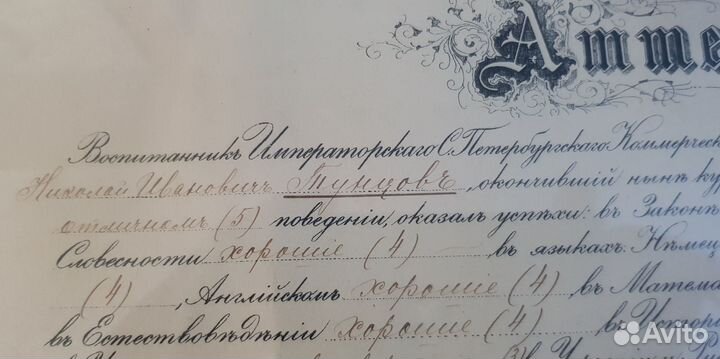 Атте
Воспитанникъ Императорскаго С. Петербургскаго Коммерчес
Николай Ивановичъ Тунцовъ, окончившій нынѣ ку
отличномъ (5) поведеніи, оказалъ успѣхи: въ Законѣ
Словесности хорошіе (4) въ языкахъ: Нѣмец
(4), Англійскомъ хорошіе (4), въ Матема
въ Естествовѣдѣніи хорошіе (4) въ Истор
(3)
Avito